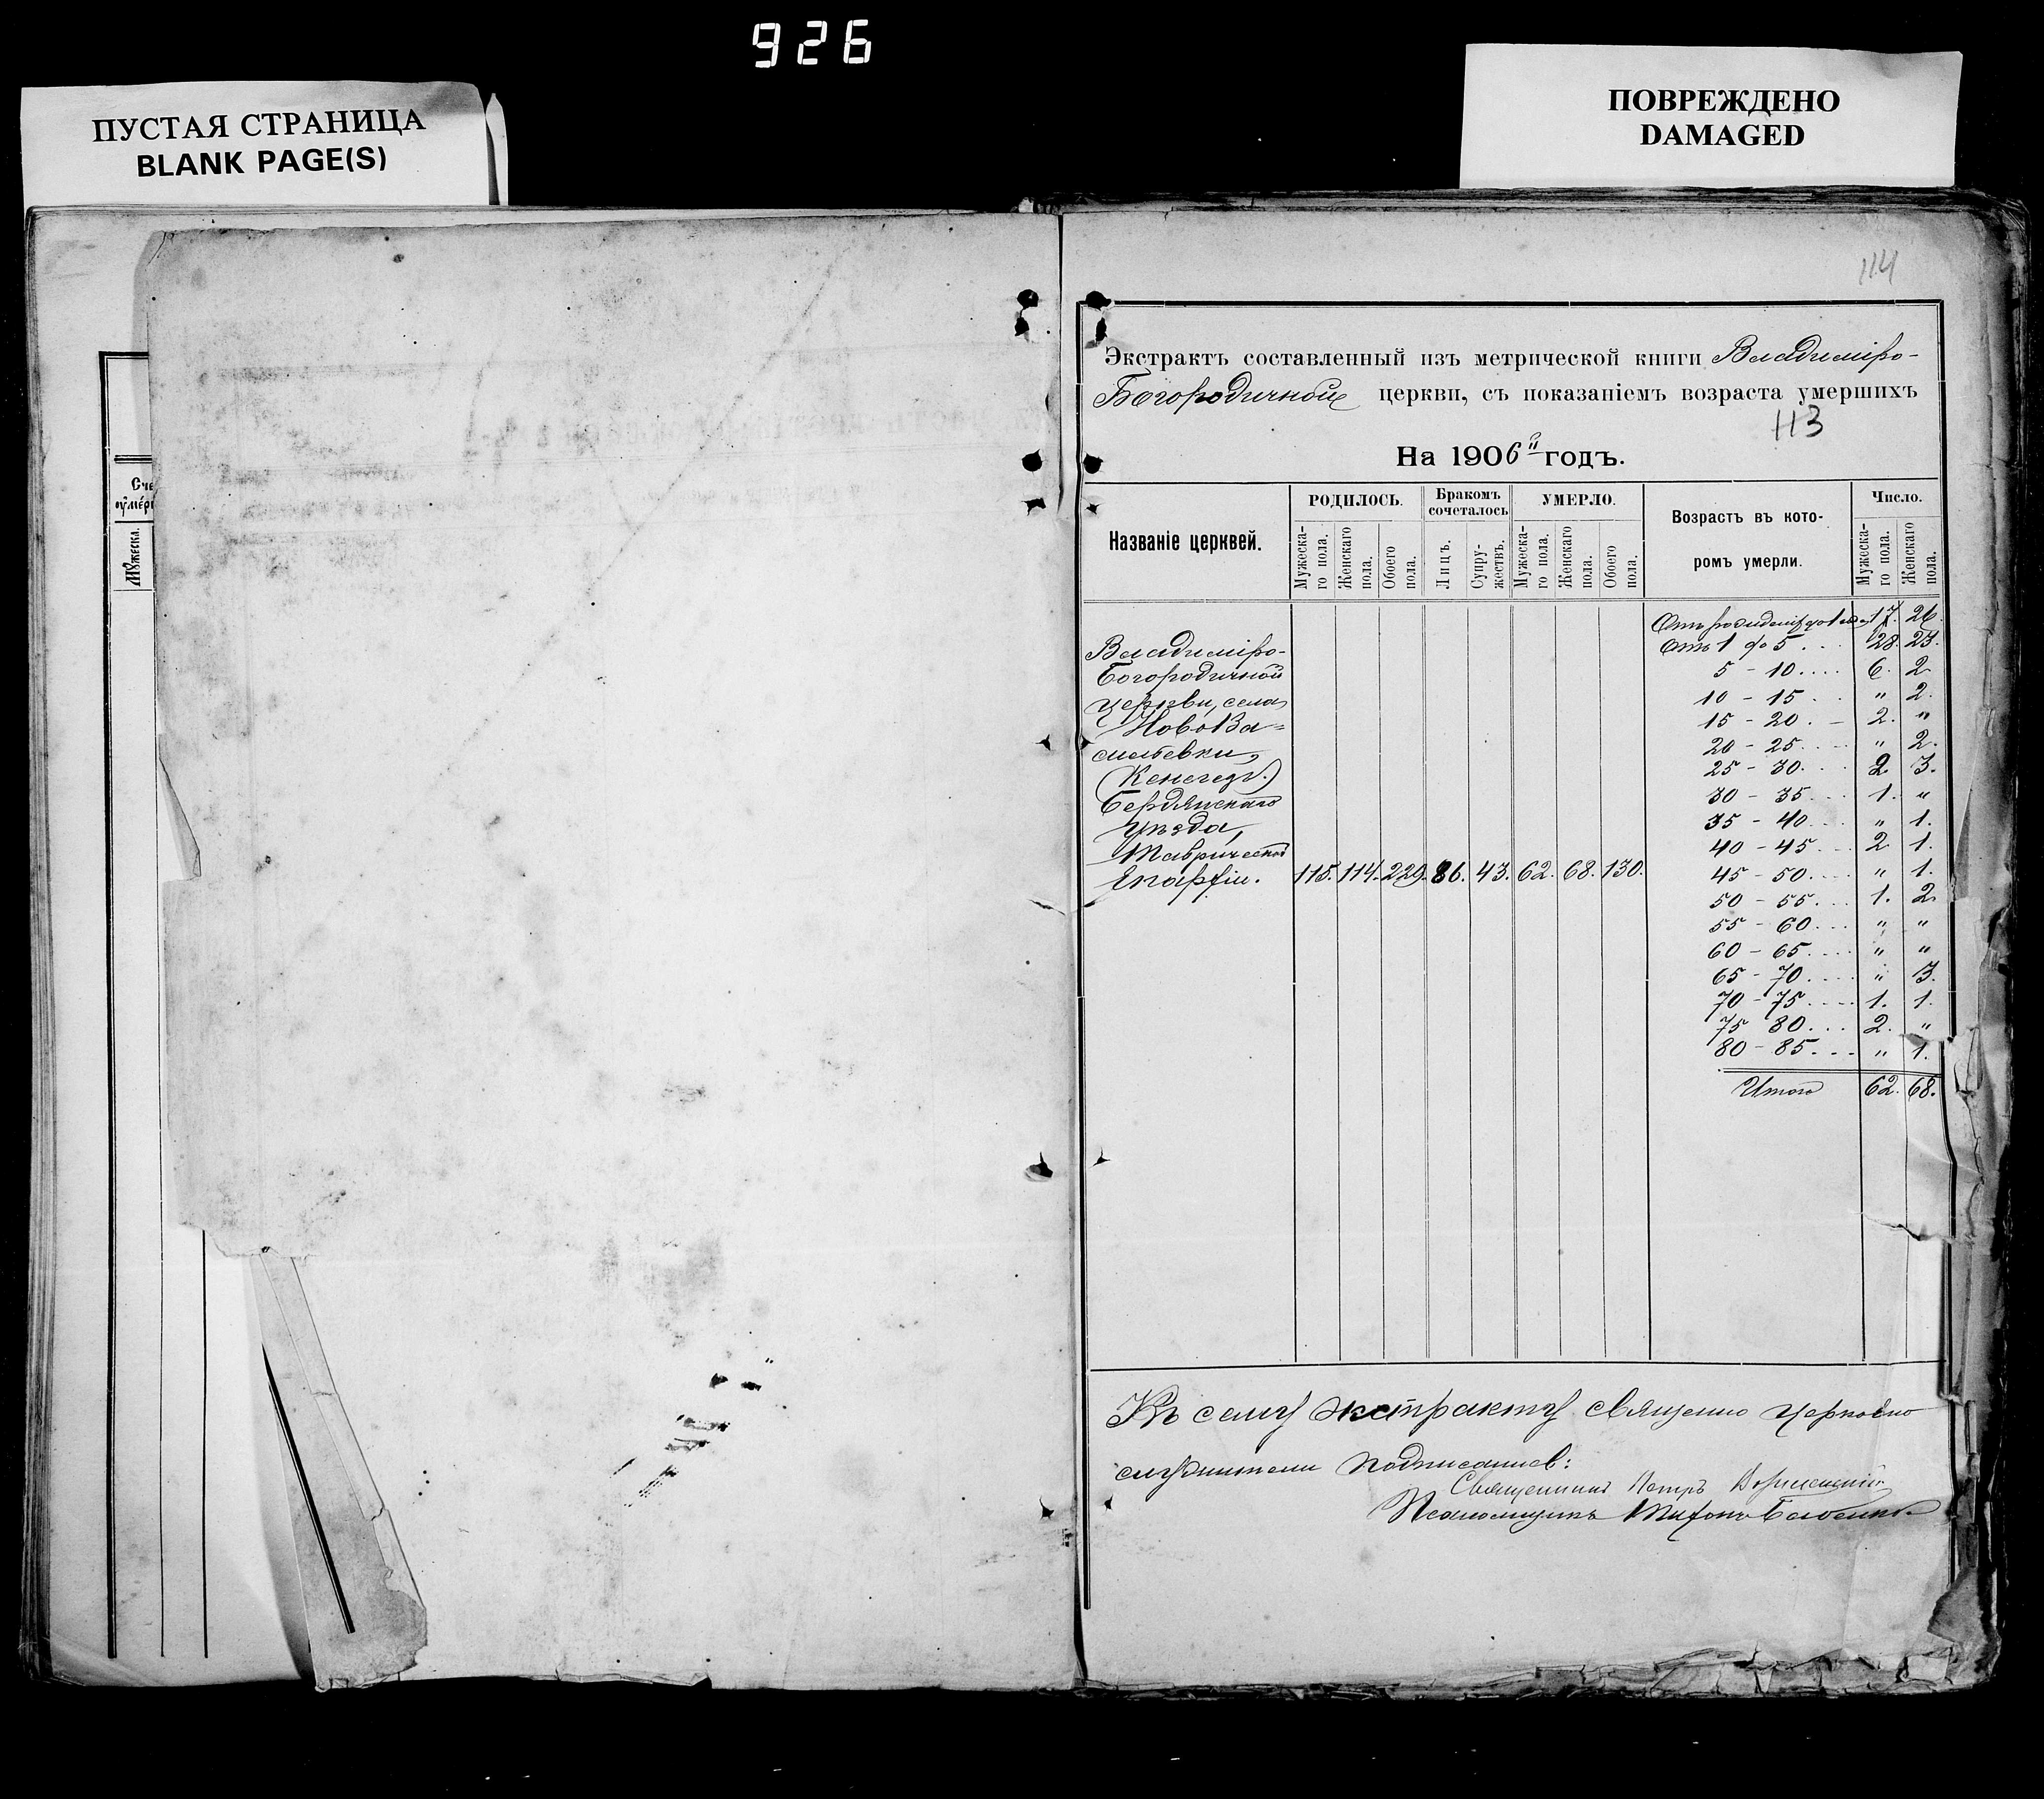 926
ПУСТАЯ СТРАНИЦА
BLANK PAGE(S)
ПОВРЕЖДЕНО
DAMAGED
Сче
оумер
Мужеска.
114
Экстрактъ составленный изъ метрической книги Владиміро-
Богородичной церкви, съ показаніемъ возраста умершихъ
113
На 1906й годъ.
Названіе церквей.
РОДИЛОСЬ.
Бракомъ сочеталось
УМЕРЛО.
Возрастъ въ кото-
ромъ умерли.
Число.
Мужеска-го пола.
Женскаго пола.
Обоего пола.
Лицъ.
Супру-жествъ.
Мужеска-го пола.
Женскаго пола.
Обоего пола.
Мужеска-го пола.
Женскаго пола.
Владиміро-
Богородичной
церкви, села
НовоВа=
сильевки,
(Кенегезъ.)
Бердянскаго
уѣзда,
Таврической
Епархіи. 115. 114. 229. 86. 43. 62. 68. 130.
Отъ рожденія до 1 17. 26.
Отъ 1 до 5 . . . 28. 23.
5 - 10 . . . . 6. 2
10 - 15 . . " 2.
15 - 20 . - 2. "
20 - 25 . . . . " 2.
25 - 30 . . . 2 3.
30 - 35 . . . 1. "
35 - 40 . . . " 1.
40 - 45 . . . 2 1.
45 - 50 . . . . " 1.
50 - 55 . . . 1. 2
55 - 60 . . . " "
60 - 65 . . . . " "
65 - 70 . . . . " 3.
70 - 75 . . . . 1. 1.
75 80 . . . 2. "
80 - 85 . . . " 1.
Итого 62. 68.
Къ сему экстракту священно церковно
служители подписались:
Священникъ Петръ
Псаломщикъ Тихонъ